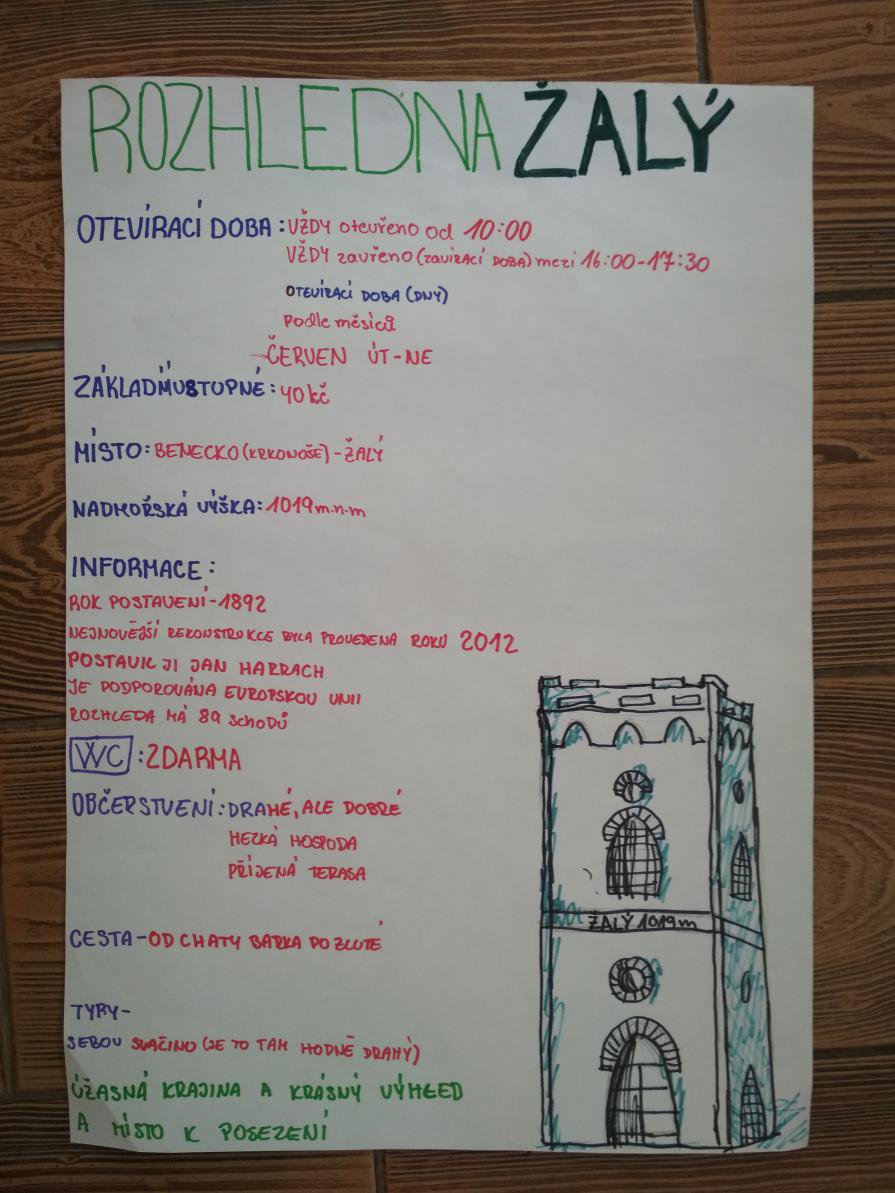 ROZHLEDNA ŽALÝ
OTEVÍRACÍ DOBA: VŽDY otevřeno od 10:00
VŽDY zavřeno (ZAVÍRACÍ DOBA) mezi 16:00-17:30
OTEVÍRACÍ DOBA (DNY)
Podle měsíců
ČERVEN ÚT-NE
ZÁKLADNÍ VSTOPNÉ: 40 kč
MÍSTO: BENECKO (KRKONOŠE) - ŽALÝ
NADMOŘSKÁ VÝŠKA: 1019 m.n.m
INFORMACE:
ROK POSTAVENÍ - 1892
NEJNOVĚJŠÍ REKONSTRUKCE BYLA PROVEDENA ROKU 2012
POSTAVIL JI JAN HARRACH
JE PODPOROVÁNA EVROPSKOU UNII
ROZHLEDA MÁ 89 SCHODŮ
WC: ZDARMA
OBČERSTVENÍ: DRAHÉ, ALE DOBRÉ
HEZKÁ HOSPODA
PŘÍJENÁ TERASA
CESTA - OD CHATY BARKA PO ŽLUTÉ
TYPY -
SEBOU SVAČINO (JE TO TAM HODNĚ DRAHÝ)
ÚŽASNÁ KRAJINA A KRÁSNÝ VÝHLED
A MÍSTO K POSEZENÍ
ŽALÝ 1019m